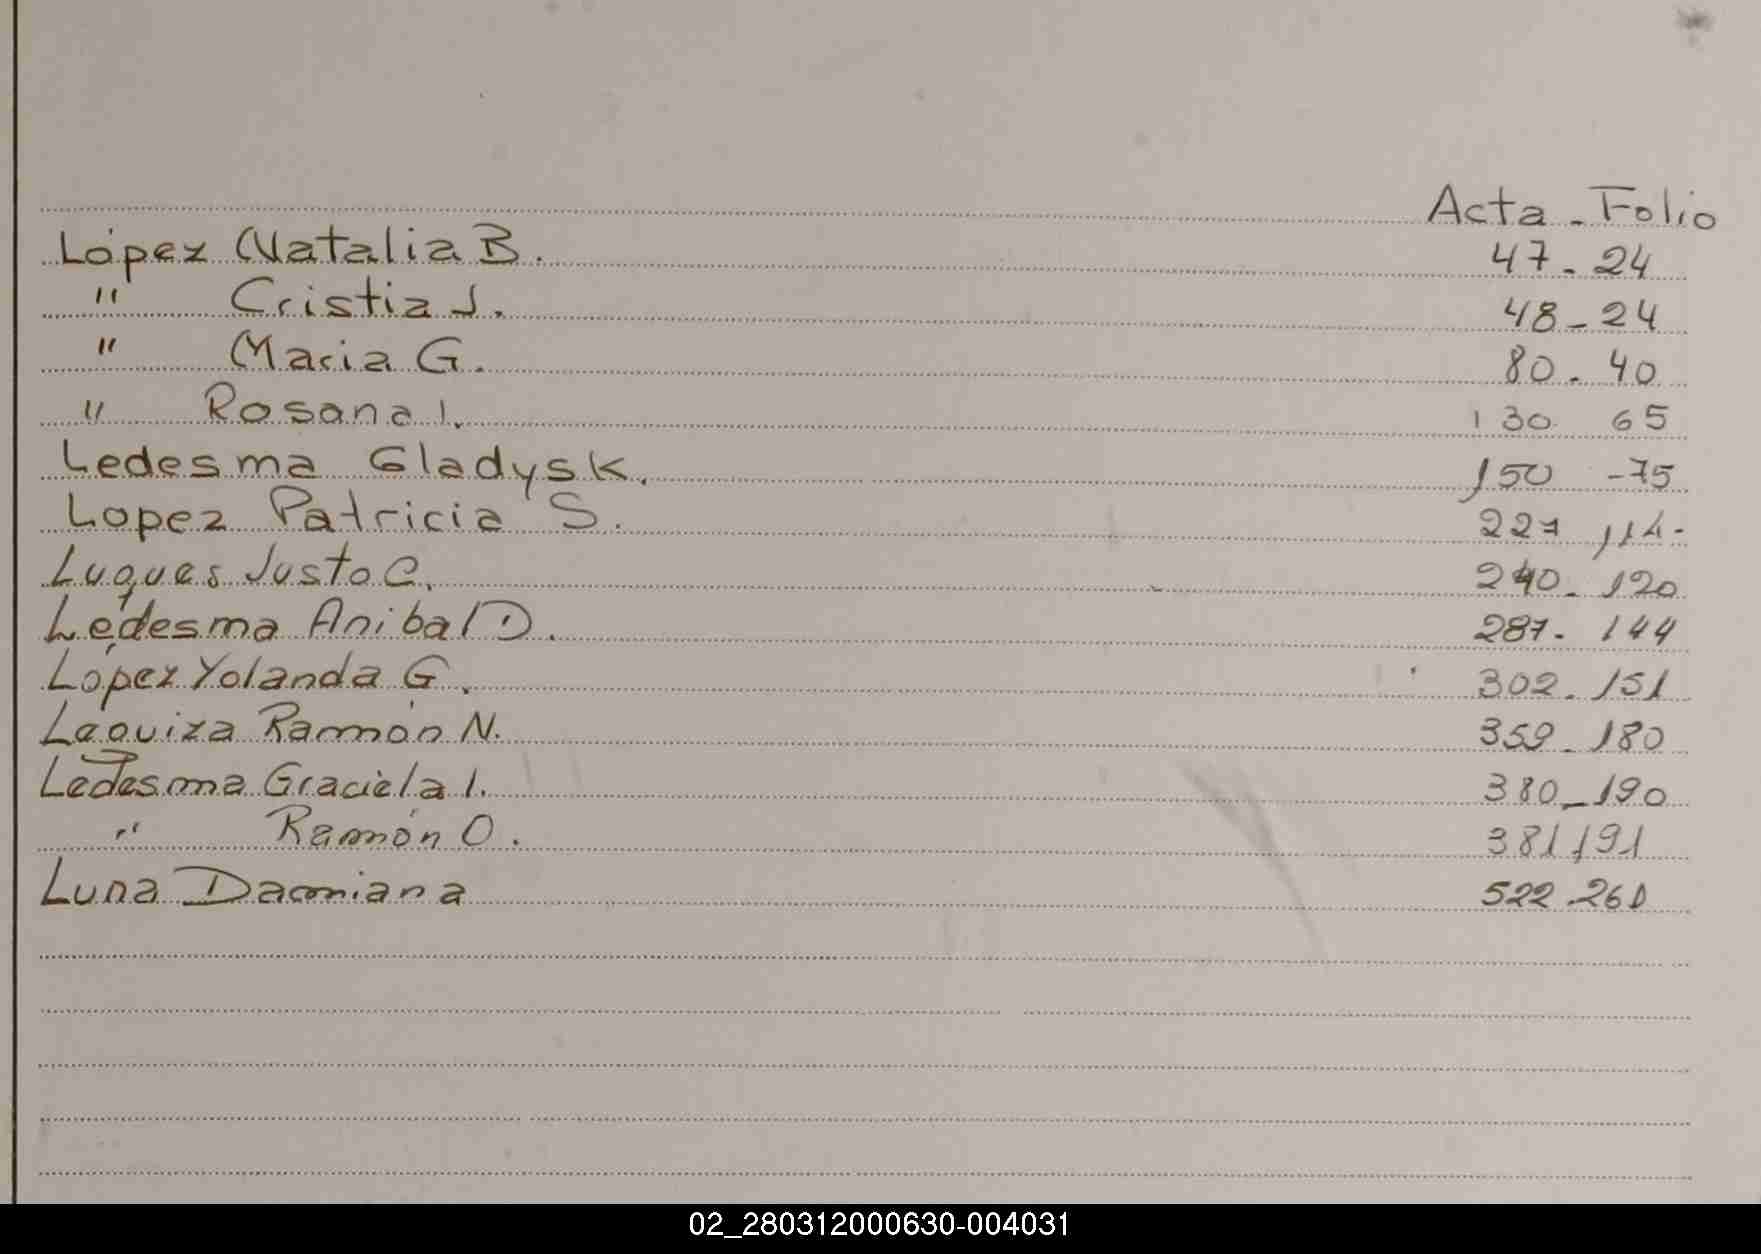 Acta - Folio
López Natalia B. 47 - 24
" Cristia J. 48 - 24
" Maria G. 80 - 40
" Rosana I. 130 65
Ledesma Gladys K. 150 - 75
Lopez Patricia S. 227 114-
Luques Justo C. 240 - 120
Ledesma Anibal D. 287 - 144
López Yolanda G. 302 - 151
Leguiza Ramón N. 359 - 180
Ledesma Graciela I. 380 - 190
" Ramón O. 381 191
Luna Damiana 522 - 261
02_280312000630-004031